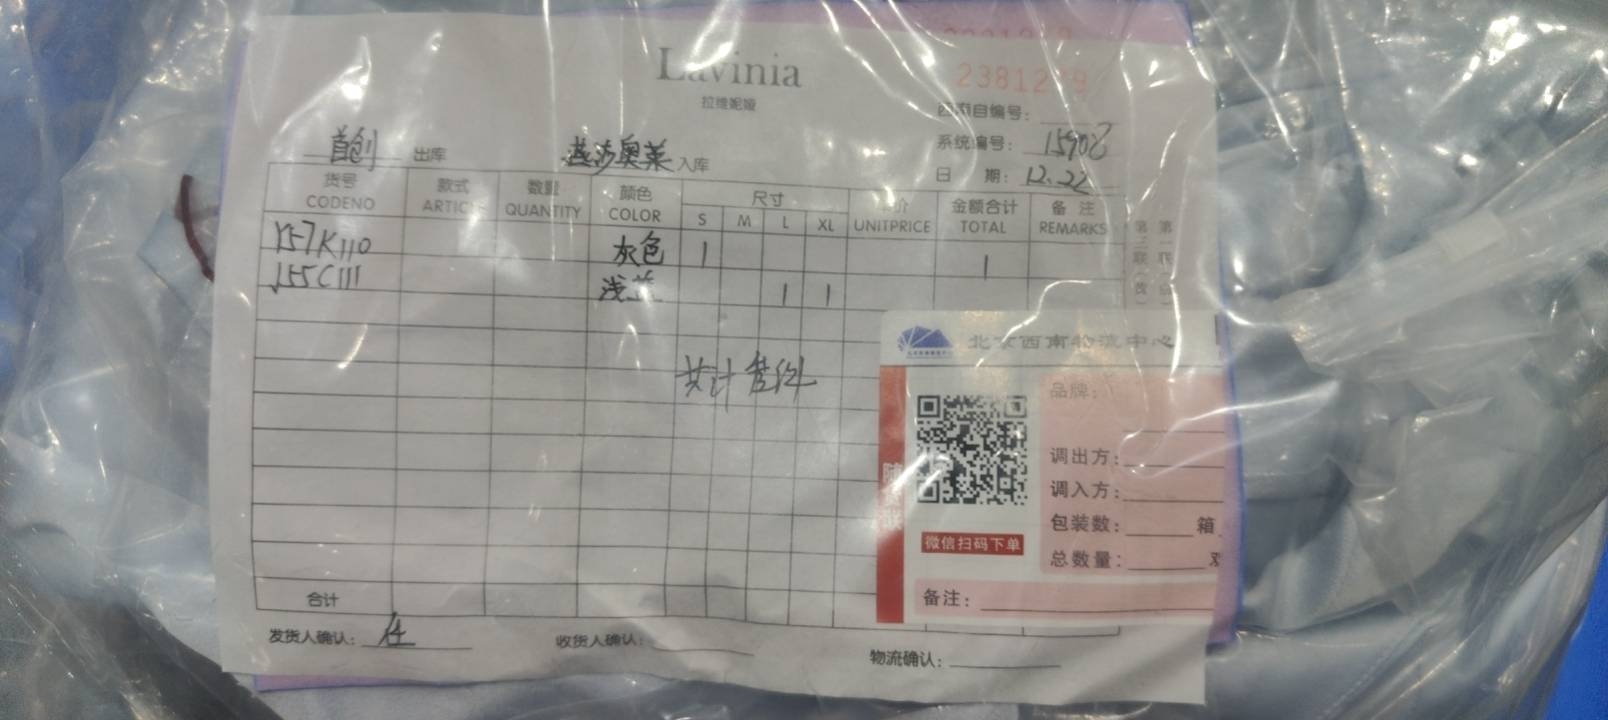 Lavinia
拉维妮娅
系统编号: 15902
首创 出库 燕莎奥莱 入库
日 期: 12.22
货号 款式 数量 颜色 尺寸 单价 金额合计 备注
CODENO ARTICLE QUANTITY COLOR S M L XL UNITPRICE TOTAL REMARKS
Y57K110 灰色 1 1
J55C111 1 1
北京西南物流中心
品牌:
调出方:
调入方:
包装数: 箱
总数量:
微信扫码下单
备注:
合计
发货人确认: 任
收货人确认:
物流确认: